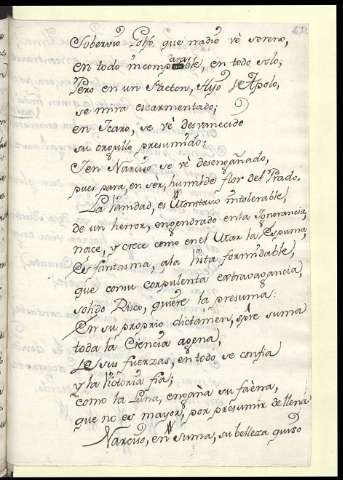 Sobervio Golfo, que nadie vè sereno,
en todo incomparable, en todo solo;
Pero en un Facton, Hijo de Apolo,
se mira escarmentado;
en Icaro, se vè desvanecido
su orgullo presumido;
I en Narciso se vè desengañado,
pues para, en ser, humilde flor del Prado.
La Vanidad, es Monstruo intolerable,
de un herror, engendrado en la Ignorancia,
nace, y crece como en el Mar la Espuma
Es fantasma, a la vista formidable,
que como corpulenta extravagancia,
solido Risco, quiere la presuma:
En su proprio dictamen, sobre suma
toda la Ciencia agena,
de sus fuerzas, en todo se confia
y la Victoria fia;
como la Luna, engaña su faena,
que no es mayor, por presumir de llena
Narciso, en suma, su belleza quiso